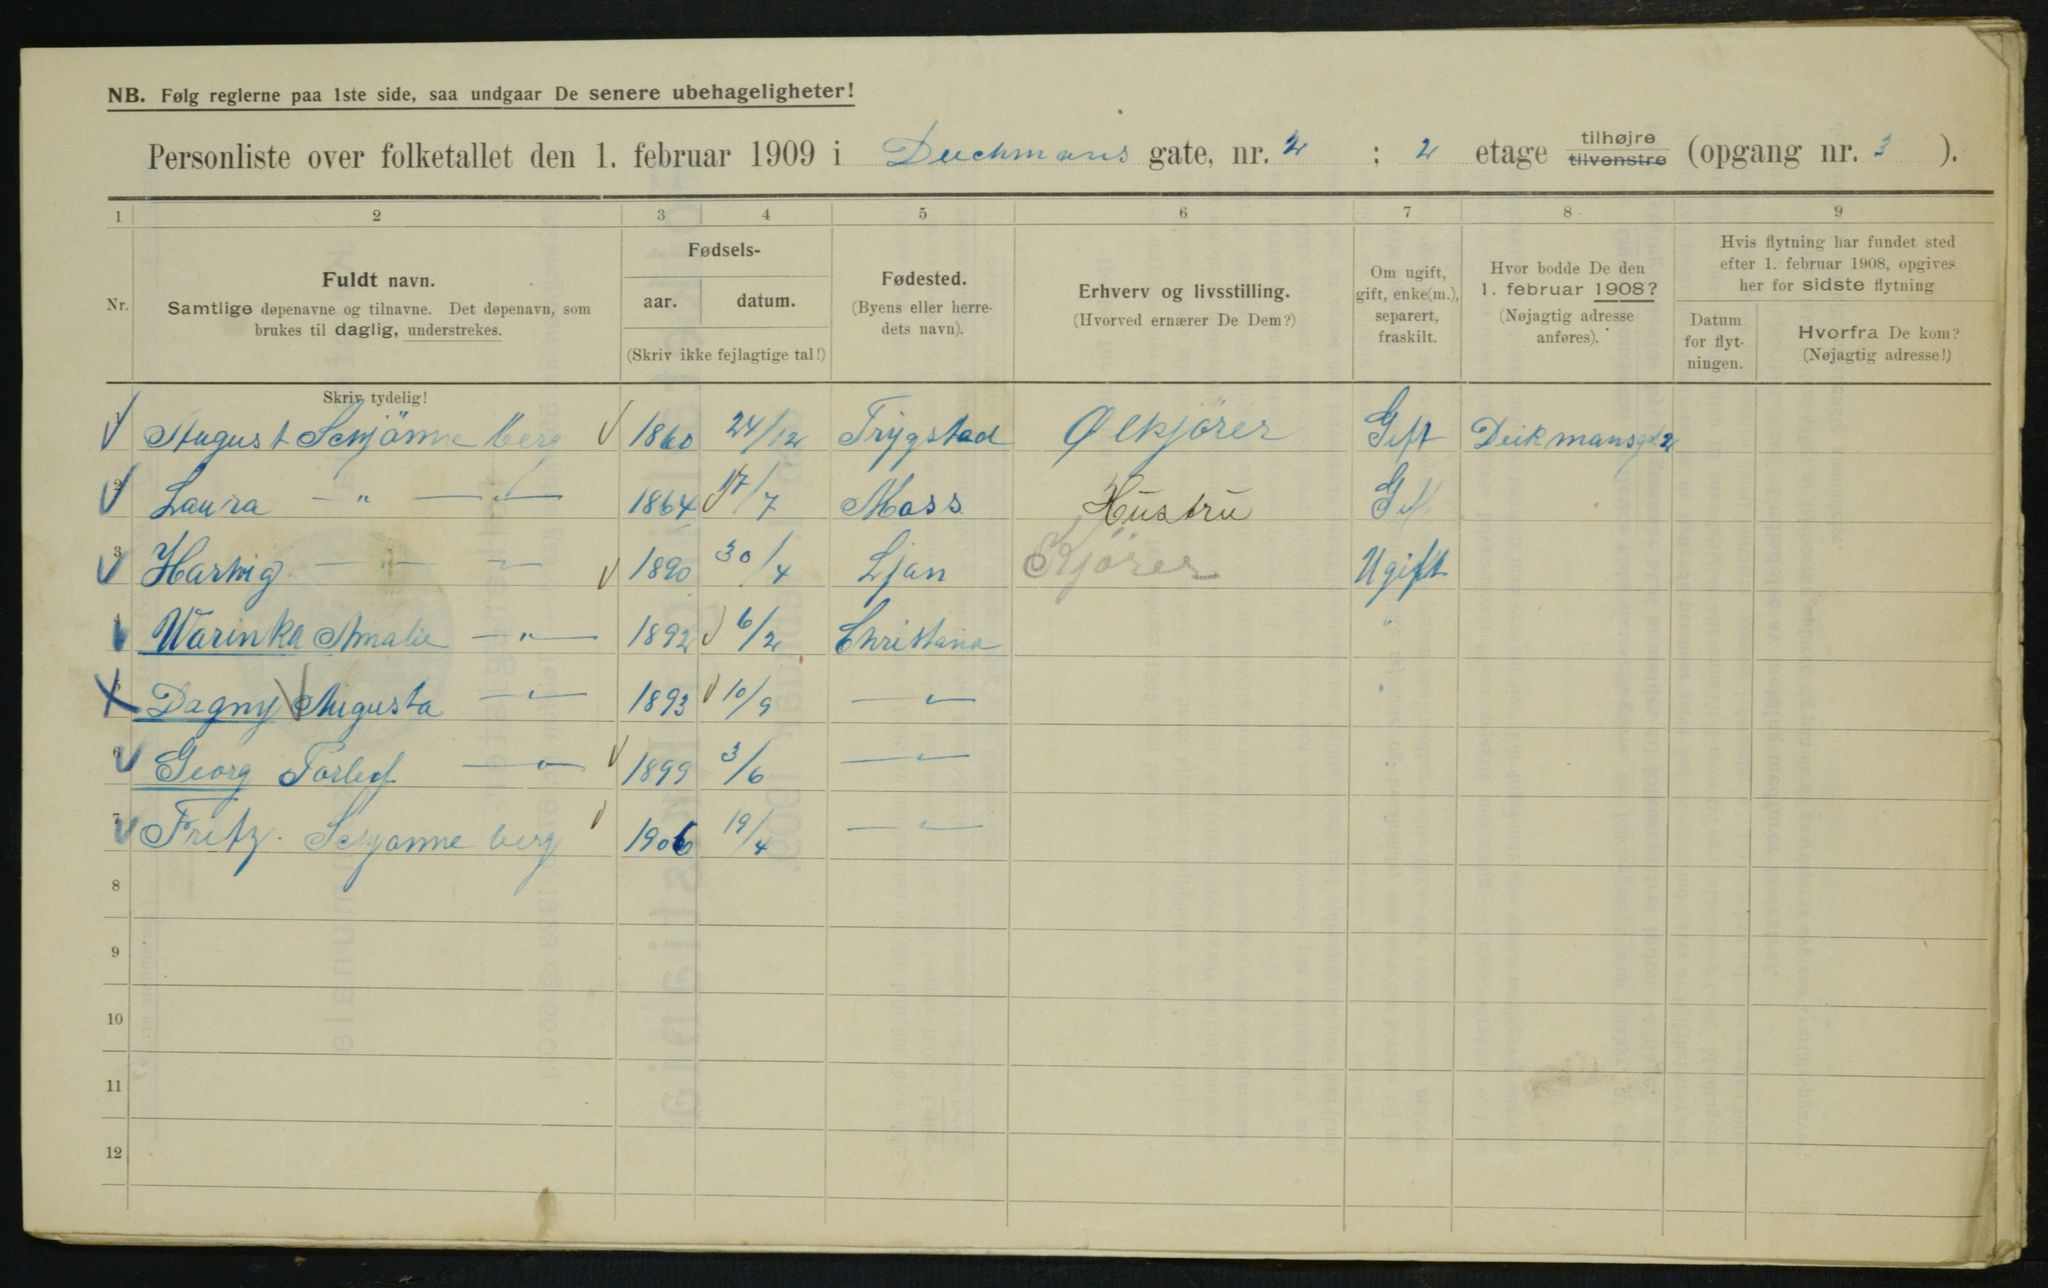 NB. Følg reglerne paa 1ste side, saa undgaar De senere ubehageligheter!
Personliste over folketallet den 1. februar 1909 i Deichmans gate, nr. 2 ; 2 etage tilhøjre tilvenstre (opgang nr. 3 ).
1 2 3 4 5 6 7 8 9
Nr.
Fuldt navn.
Samtlige døpenavne og tilnavne. Det døpenavn, som
brukes til daglig, understrekes.
Skriv tydelig!
Fødsels-
aar. datum.
(Skriv ikke fejlagtige tal!)
Fødested.
(Byens eller herre-
dets navn).
Erhverv og livsstilling.
(Hvorved ernærer De Dem?)
Om ugift,
gift, enke(m.),
separert,
fraskilt.
Hvor bodde De den
1. februar 1908?
(Nøjagtig adresse
anføres).
Hvis flytning har fundet sted
efter 1. februar 1908, opgives
her for sidste flytning
Datum
for flyt-
ningen.
Hvorfra De kom?
(Nøjagtig adresse!)
1 August Schjönneberg 1860 24/12 Trygstad Ølkjörer Gift Deikmansgd 2
2 Laura — " — 1864 17/7 Moss Hustru Gif
3 Hartvig — " — 1890 30/4 Ljan Kjörer Ugift
4 Warinka Amalie — " — 1892 6/2 Christania "
5 Dagny Augusta — " — 1893 10/9 — " — "
6 Georg Torlef — " — 1899 3/6 — " — "
7 Fritz. Schjönneberg 1906 19/4 — " —
8
9
10
11
12